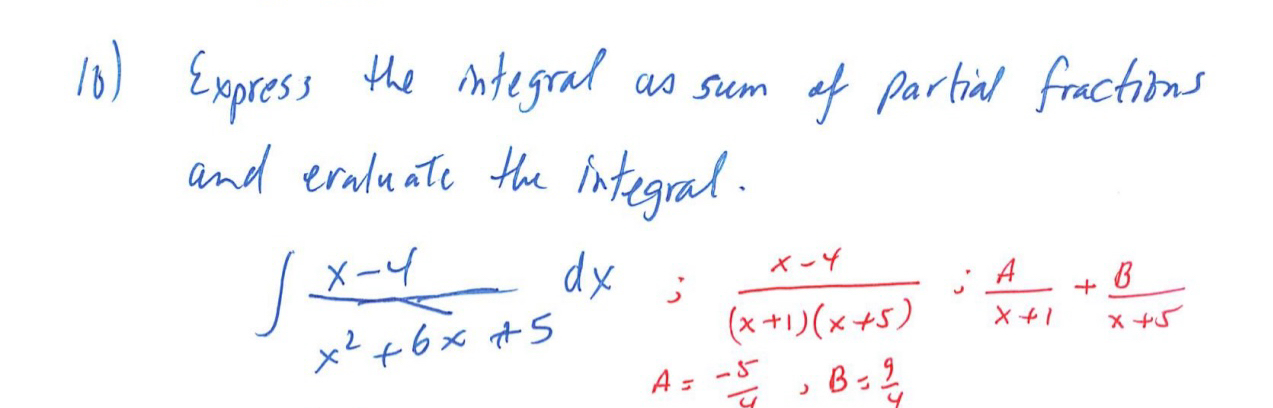 10) Express the integral as sum of partial fractions
and evaluate the integral.
∫ (x-4)/(x²+6x+5) dx ; (x-4)/((x+1)(x+5)) ; A/(x+1) + B/(x+5)
A = -5/4 , B = 9/4